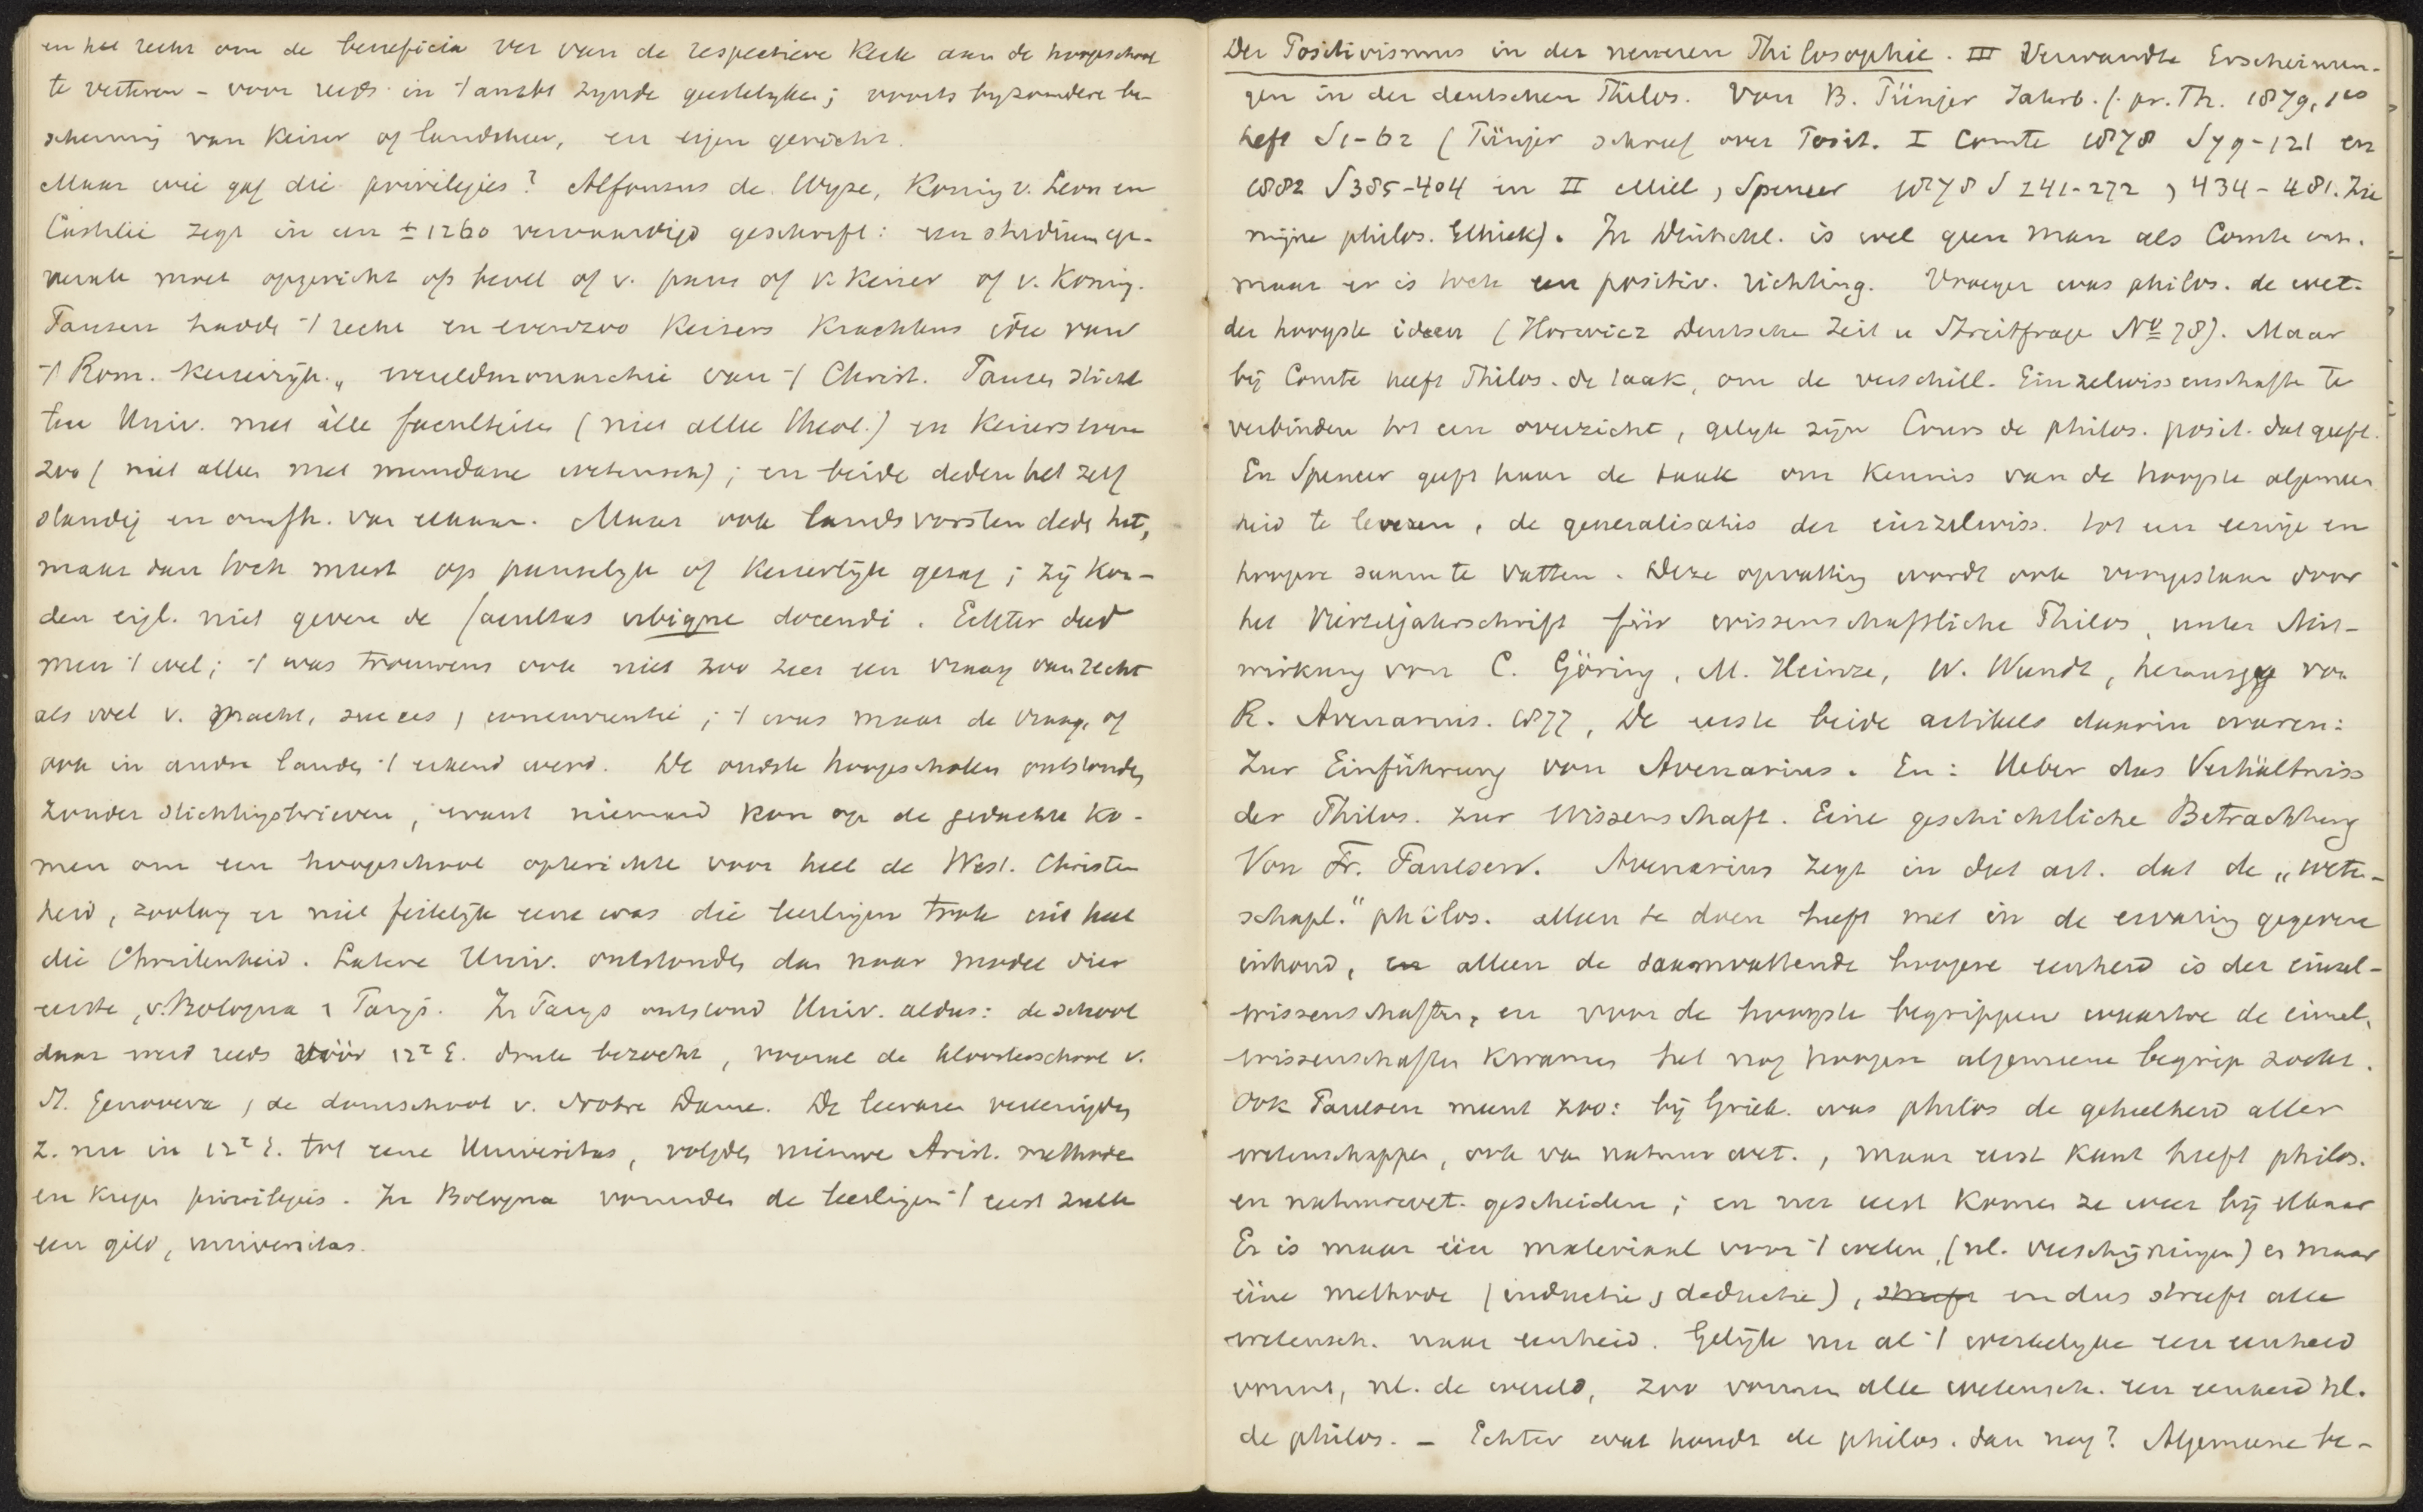 en het recht om de beneficia ver van de respectieve kerk aan de hoogeschool
te verteren – voor reeds in 't ambt zijnde geestelijken; voorts byzondere be-
scherming van Keizer of landsheer, en eigen gericht.
Maar wie gaf die privilegies? Alfonsus de Wyze, Koning v. Leon en
Castilië zegt in een ± 1260 vervaardigd geschrift: een studium ge-
nerale moet opgericht op bevel of v. paus of v. Keizer of v. Koning.
Pausen hadden 't recht en evenzoo Keizers krachtens idee van
't Rom. Keizerrijk, wereldmonarchie van 't Christ. Pausen sticht
ten Univ. met àlle faculteiten (niet alleen theol.) en Keizers even
zoo (niet alleen met mundane wetensch); en beide deden het zelf
standig en onafh. van elkaar. Maar ook landsvorsten deden het,
maar dan toch meest op pauselijk of Keizerlijk gezag; zij kon-
den eigl. niet geven de facultas ubique docendi. Echter deed
men 't wel; 't was trouwens ook niet zoo zeer een vraag van recht
als wel v. macht, succes, concurrentie; 't was maar de vraag, of
ook in andre landen 't erkend werd. De oudste hoogescholen ontstonden
zonder stichtingsbrieven, want niemand kon op de gedachte ko-
men om een hoogeschool opterichten voor heel de West. Christen
heid, zoolang er niet feitelijk eene was die leerlingen trok uit heel
die Christenheid. Latere Univ. ontstonden dan naar model dier
eerste, v. Bologna & Parijs. In Parys ontstond Univ. aldus: de school
daar werd reeds vóór 12e E. druk bezocht, vooral de kloosterschool v.
St. Genoveva, de domschool v. Notre Dame. De leeraren vereenigden
z. nu in 12e E. tot eene Universitas, volgden nieuwe Arist. methode
en kregen privilegies. In Bologna vormden de leerlingen 't eerst zulk
een gild, universitas.
Der Positivismus in der neueren Philosophie. III Verwandte Erscheinun-
gen in der deutschen Philos. Von B. Pünjer Jahrb. f. pr. Th. 1879, 1es
heft S 1-62 (Pünjer schreef over Posit. I Comte 1878 S 79-121 en
1882 S 385-404 in II Mill, Spencer 1878 S 241-272, 434-481. Zie
mijne philos. Ethiek). In Deutschl. is wel geen man als Comte enz.
maar er is toch een positiv. richting. Vroeger was philos. de wet.
der hoogste ideen (Horwicz Deutsche Zeit u Streitfrage No 78). Maar
bij Comte heeft Philos. de taak, om de verschill. Einzelwissenschaften te
verbinden tot een overzicht, gelijk zijn Cours de philos. posit. dat geeft.
En Spencer geeft haar de taak om kennis van de hoogste algemeen
heid te leveren, de generalisaties der einzelwiss. tot een eenige en
hoogere saam te vatten. Deze opvatting wordt ook voorgestaan door
het Vierteljahrschrift für wissenschaftliche Philos, unter Mit-
wirkung von C. Göring, M. Heinze, W. Wundt, herausgg von
R. Avenarius. 1877, De eerste beide artikels daarin waren:
Zur Einführung von Avenarius. En: Ueber das Verhältniss
der Philos. zur Wissenschaft. Eine geschichtliche Betrachtung
Von Fr. Paulsen. Avenarius zegt in dat art. dat de „weten-
schapl." philos. alleen te doen heeft met in de ervaring gegeven
inhoud, en alleen de saamvattende hoogere eenheid is der einzel-
wissenschaften, en voor de hoogste begrippen waartoe de einzel.
wissenschaften kwamen het nog hoogere algemeene begrip zoekt.
Ook Paulsen meent zoo: bij Griek. was philos de geheelheid aller
wetenschappen, ook van natuurwet., maar eerst Kant heeft philos.
en natuurwet. gescheiden; en nu eerst komen ze weer bij elkaar
Er is maar één materiaal voor 't weten, (nl. verschijningen) er maar
ééne methode (inductie, deductie), streeft en dus streeft alle
wetensch. naar eenheid. Gelijk nu al 't werkelijke een eenheid
vormt, nl. de wereld, zoo vormen alle wetensch. een eenheid nl.
de philos. – Echter wat houdt de philos. dan nog? Algemeene be-